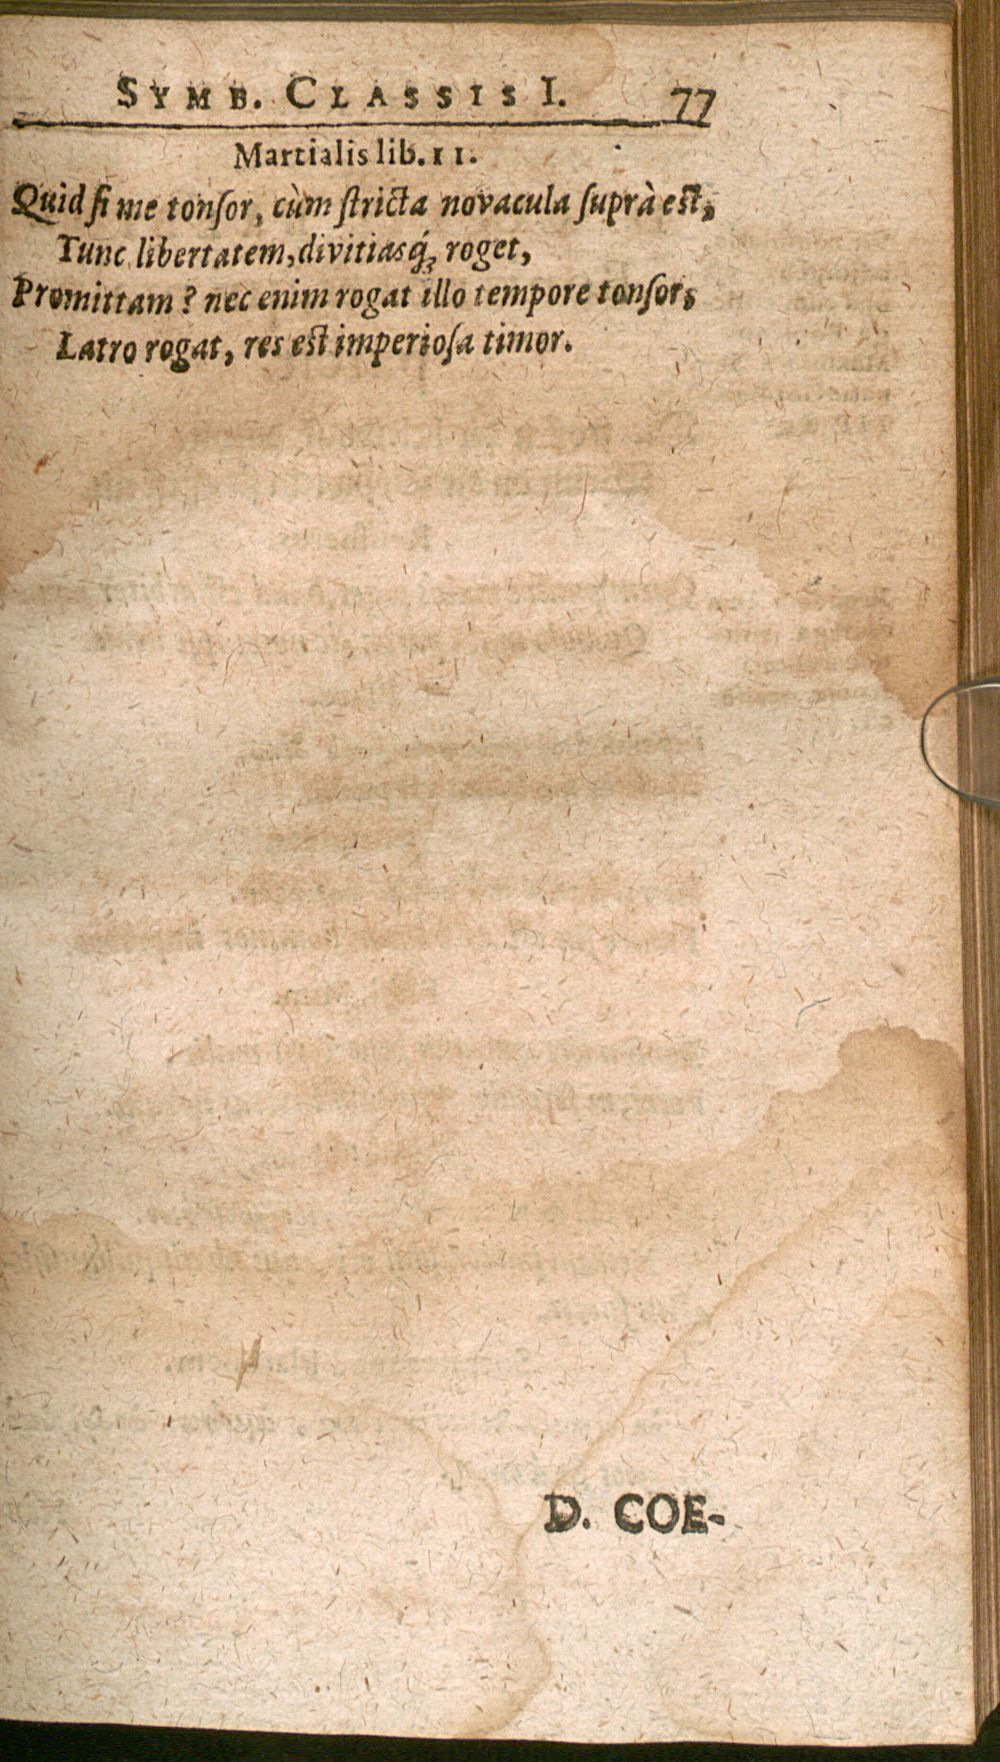 SYMB. CLASSIS I. 77
Martialis lib. 11.
Quid ſi me tonſor, cùm ſtricta novacula ſuprà eſt,
Tunc libertatem, divitiasq́; roget,
Promittam? nec enim rogat illo tempore tonſor,
Latro rogat, res eſt imperioſa timor.
D. COE-